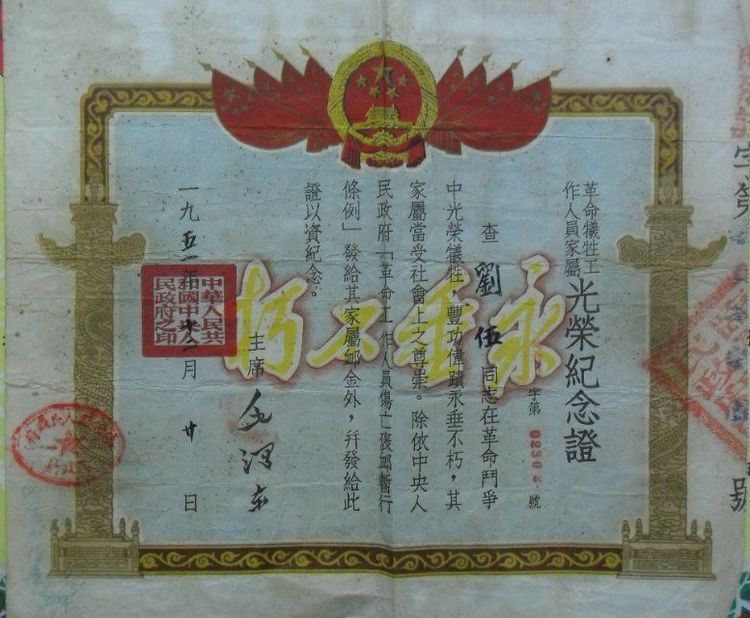 革命犧牲工
作人員家屬
光榮紀念證
字第 02302 號
查 劉伍 同志在革命鬥爭
中光榮犧牲，豐功偉蹟永垂不朽，其
家屬當受社會上之尊崇。除依中央人
民政府「革命工作人員傷亡褒卹暫行
條例」發給其家屬卹金外，并發給此
證以資紀念。
主席 毛澤東
一九五二年十二月廿日
永垂不朽
中華人民共
和國中央人
民政府之印
號